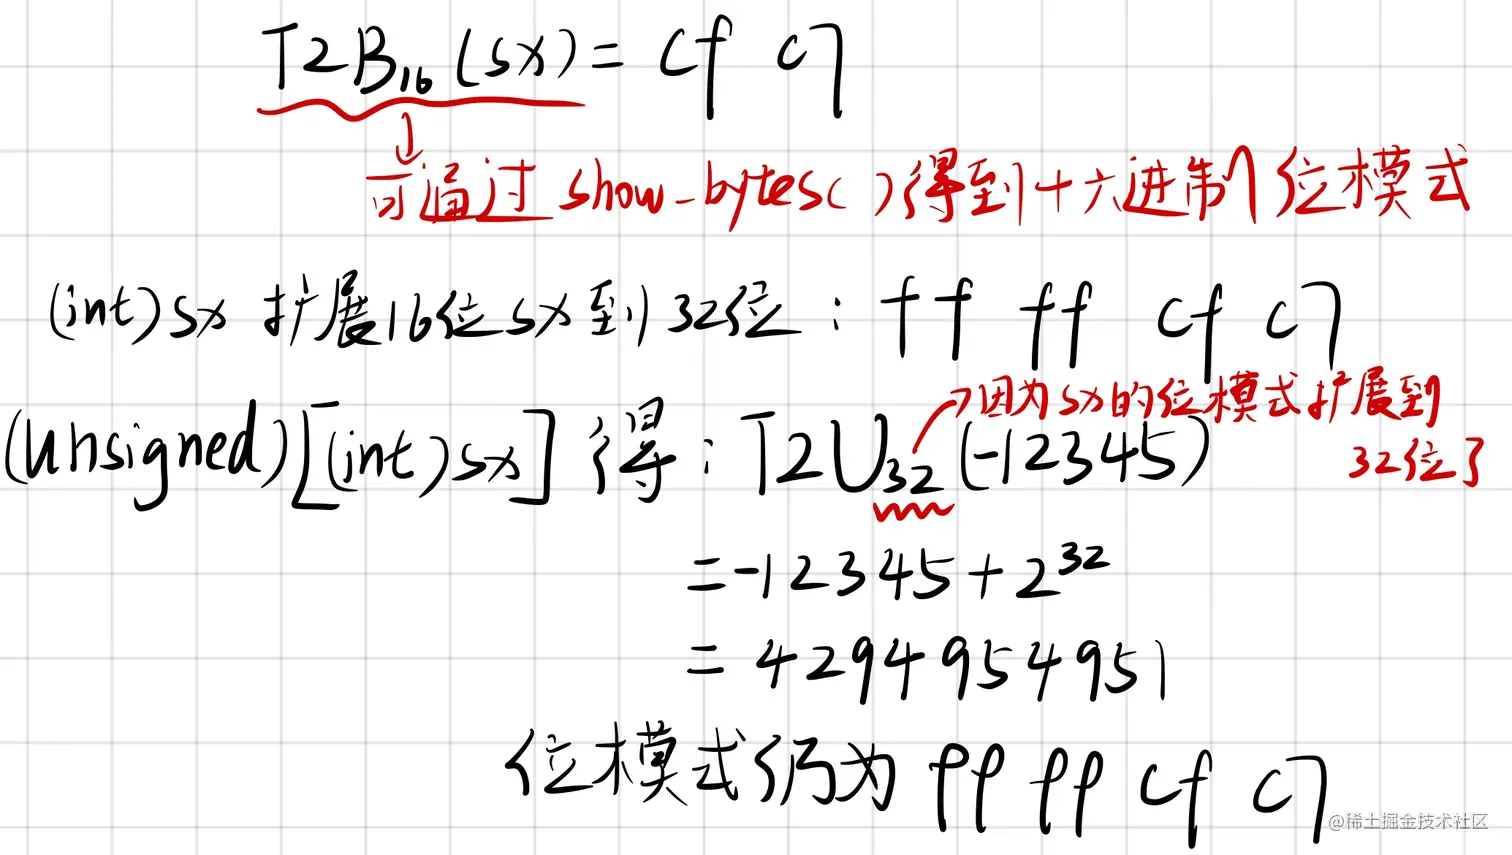 T2B₁₆(sx) = cf c7
可通过 show_bytes( )得到十六进制位模式
(int)sx 扩展16位sx到32位: ff ff cf c7
因为sx的位模式扩展到
32位了
(unsigned)[(int)sx] 得: T2U₃₂(-12345)
=-12345+2³²
= 4294954951
位模式仍为 ff ff cf c7
@稀土掘金技术社区